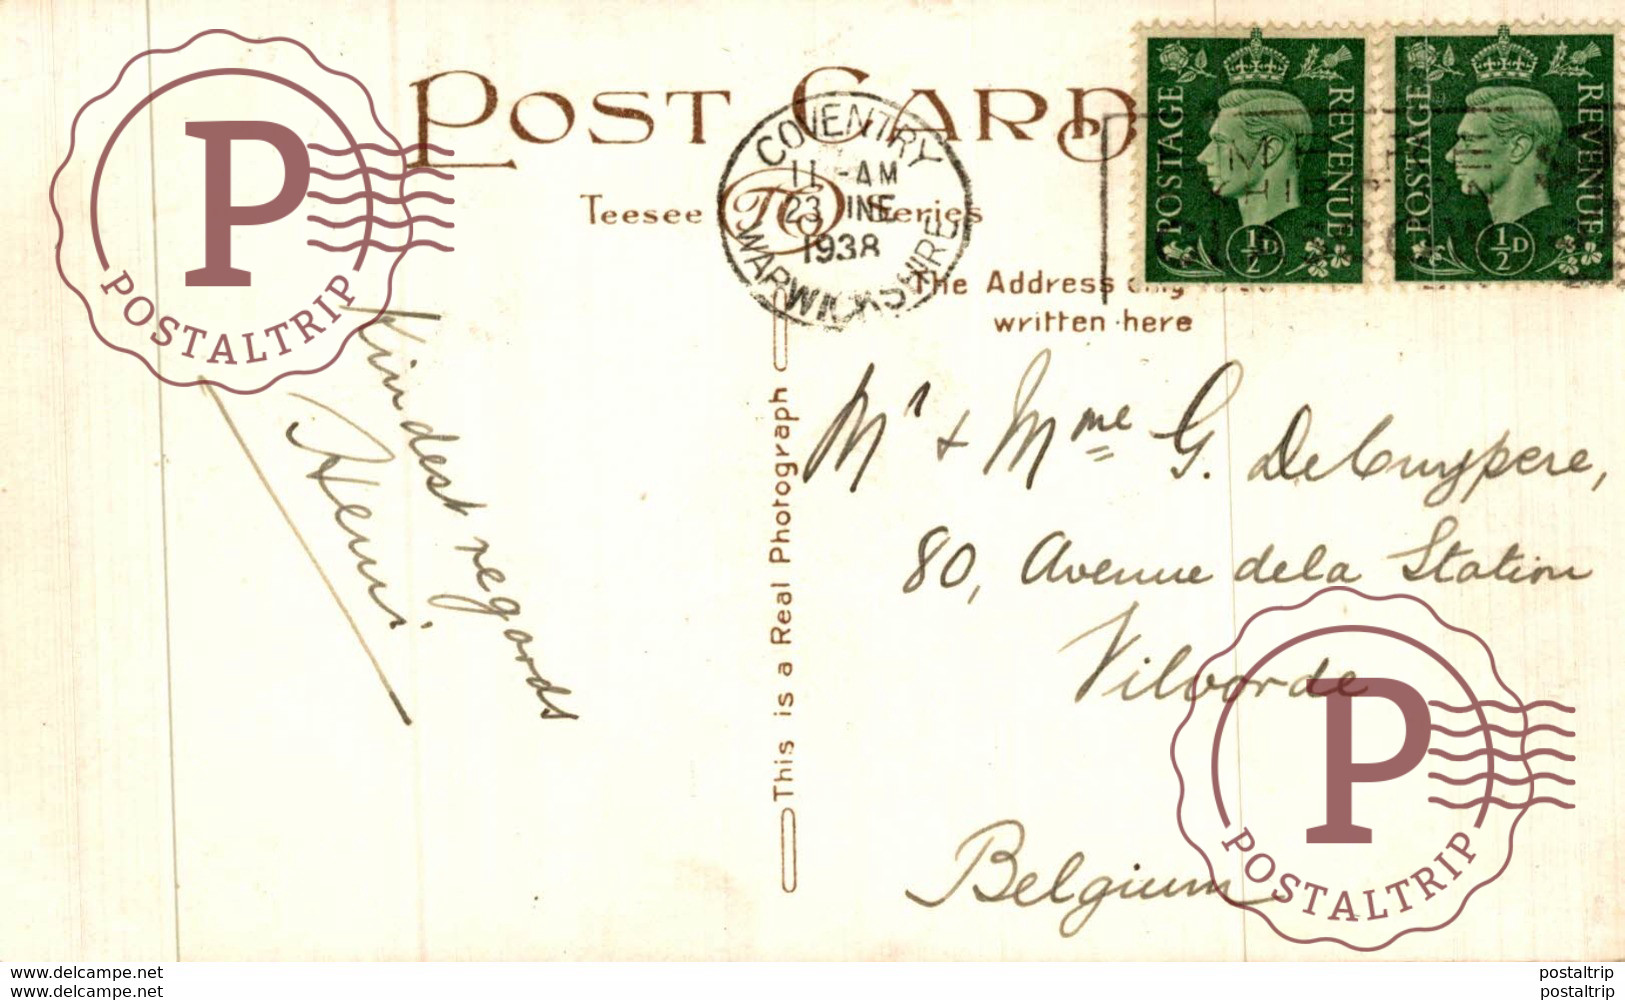 POST CARD
Teesee TC Series
COVENTRY
11 - AM
23 JNE
1938
WARWICKSHIRE
POSTAGE REVENUE
½D
POSTAGE REVENUE
½D
The Address only to be
written here
Kindest regards
Henri.
This is a Real Photograph
Mr + Mme G. DeCuypere,
80, Avenue de la Station
Vilvorde
Belgium
P
POSTALTRIP
P
POSTALTRIP
www.delcampe.net
postaltrip
www.delcampe.net
postaltrip